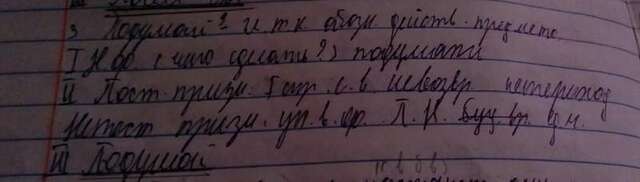 3 Подумай? г. т.к обозн действ. предмета
I Н.ф. (что сделать?) подумать
II Пост. призн. I спр. с. в. невозвр. непереход
Непост призн. уп. в. ф. П. Н. буд вр. ед. ч.
III Подумай